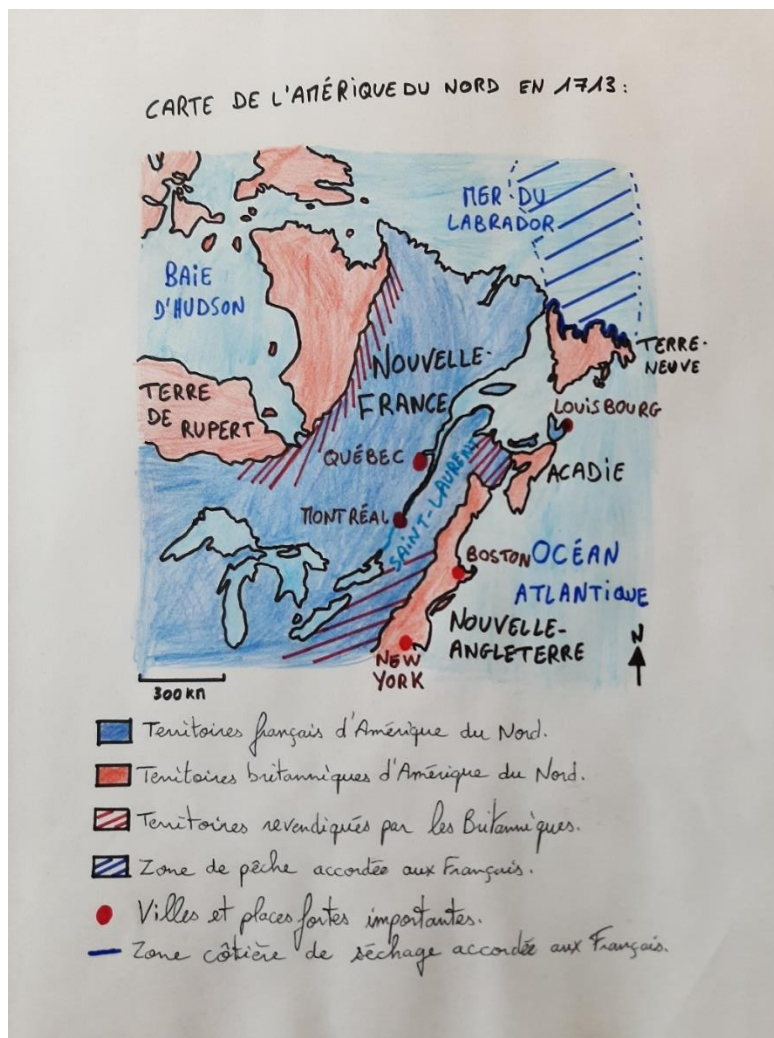 CARTE DE L'AMÉRIQUE DU NORD EN 1713:
MER DU
LABRADOR
BAIE
D'HUDSON
NOUVELLE-
FRANCE
TERRE-
NEUVE
TERRE
DE RUPERT
LOUISBOURG
QUÉBEC
ACADIE
MONTRÉAL
SAINT-LAURENT
BOSTON
OCÉAN
ATLANTIQUE
NOUVELLE-
ANGLETERRE
N
NEW
YORK
300 km
Territoires français d'Amérique du Nord.
Territoires britanniques d'Amérique du Nord.
Territoires revendiqués par les Britanniques.
Zone de pêche accordée aux Français.
Villes et places fortes importantes.
Zone côtière de séchage accordée aux Français.